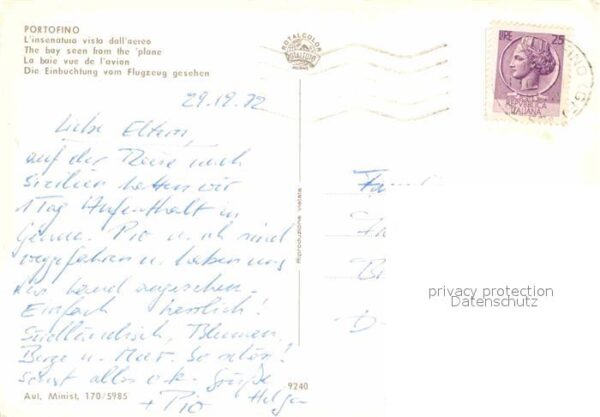 PORTOFINO
L'insenatura vista dall'aereo
The bay seen from the 'plane
La baie vue de l'avion
Die Einbuchtung vom Flugzeug gesehen
ROTALCOLOR
ROTALFOTO
MILANO
LIRE 25
REPUBBLICA
ITALIANA
29.12.72
Liebe Eltern,
auf der Reise nach
Sizilien hatten wir
1 Tag Aufenthalt in
Genua. Pio u. ich sind
u. haben uns
das Land angesehen.
Einfach herrlich!
Südländisch, Blumen,
Berge u. Meer. So schön!
Sonst alles o.k. Grüße
Helga
+ Pio
Riproduzione vietata
privacy protection
Datenschutz
Aut. Minist. 170/5985
9240